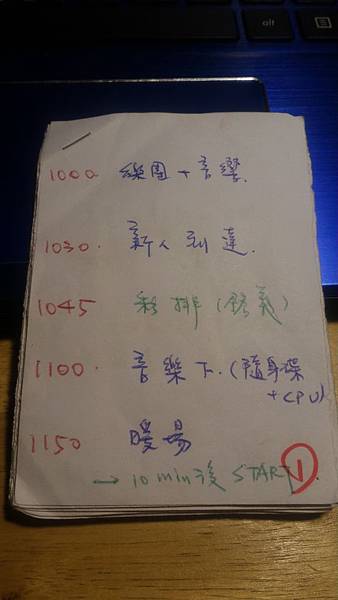 alt
1000 樂團 + 音響.
1030. 新人到達.
1045 彩排
1100. 音樂下.(隨身碟
+ CPU)
1150 暖場
→ 10 min 後 START.
1